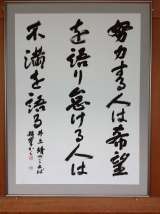 努力する人は希望
を語り怠ける人は
不満を語る
井上靖のことば